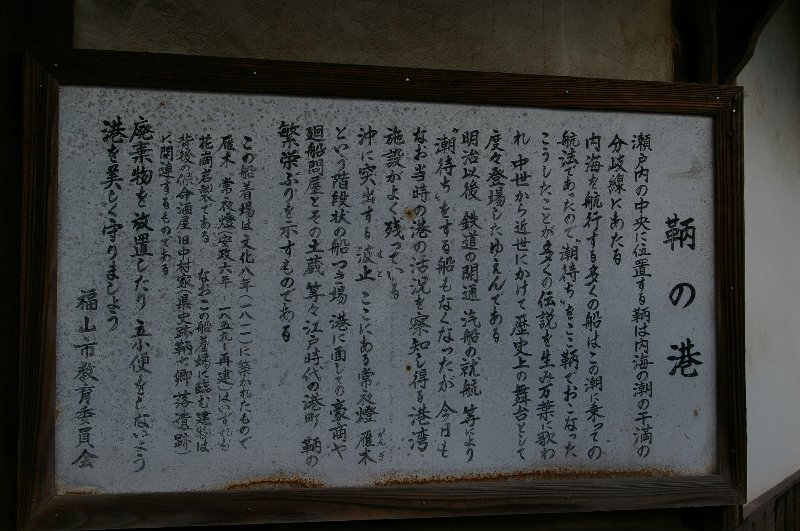 鞆の港
瀬戸内の中央に位置する鞆は内海の潮の干満の
分岐線にあたる
内海を航行する多くの船はこの潮に乗っての
航法であったので〝潮待ち〟をここ鞆でおこなった
こうしたことが多くの伝説を生み万葉に歌わ
れ 中世から近世にかけて歴史上の舞台として
度々登場したゆえんである
明治以後 鉄道の開通 汽船の就航 等により
〝潮待ち〟をする船もなくなったが 今日も
なお当時の港の活況を察知し得る港湾
施設がよく残っている
沖に突出する波止 ここにある常夜燈 雁木
という階段状の船つき場 港に面しての豪商や
廻船問屋とその土蔵 等々江戸時代の港町 鞆の
繁栄ぶりを示すものである
この船着場は文化八年(一八一一)に築かれたもので
雁木 常夜燈(安政六年 一八五九 再建)はいずれも
花崗岩製である なおこの船着場に臨む建物は
背後の保命酒屋旧中村家(県史跡鞆七卿落遺跡)
に関連するものである
廃棄物を放置したり 立小便をしないよう
港を美しく守りましょう
福山市教育委員会